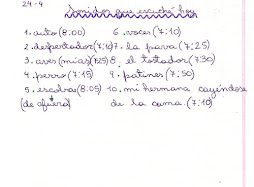 24-4
Sonidos que escuché hoy
1. auto (8:00) 6. voces (7:10)
2. despertador (7:10) 7. la pava (7:25)
3. aves (mías) (7:25) 8. el tostador (7:30)
4. perro (7:15) 9. patines (7:50)
5. escobas (8:05) 10. mi hermana cayéndose
(de afuera) de la cama. (7:10)